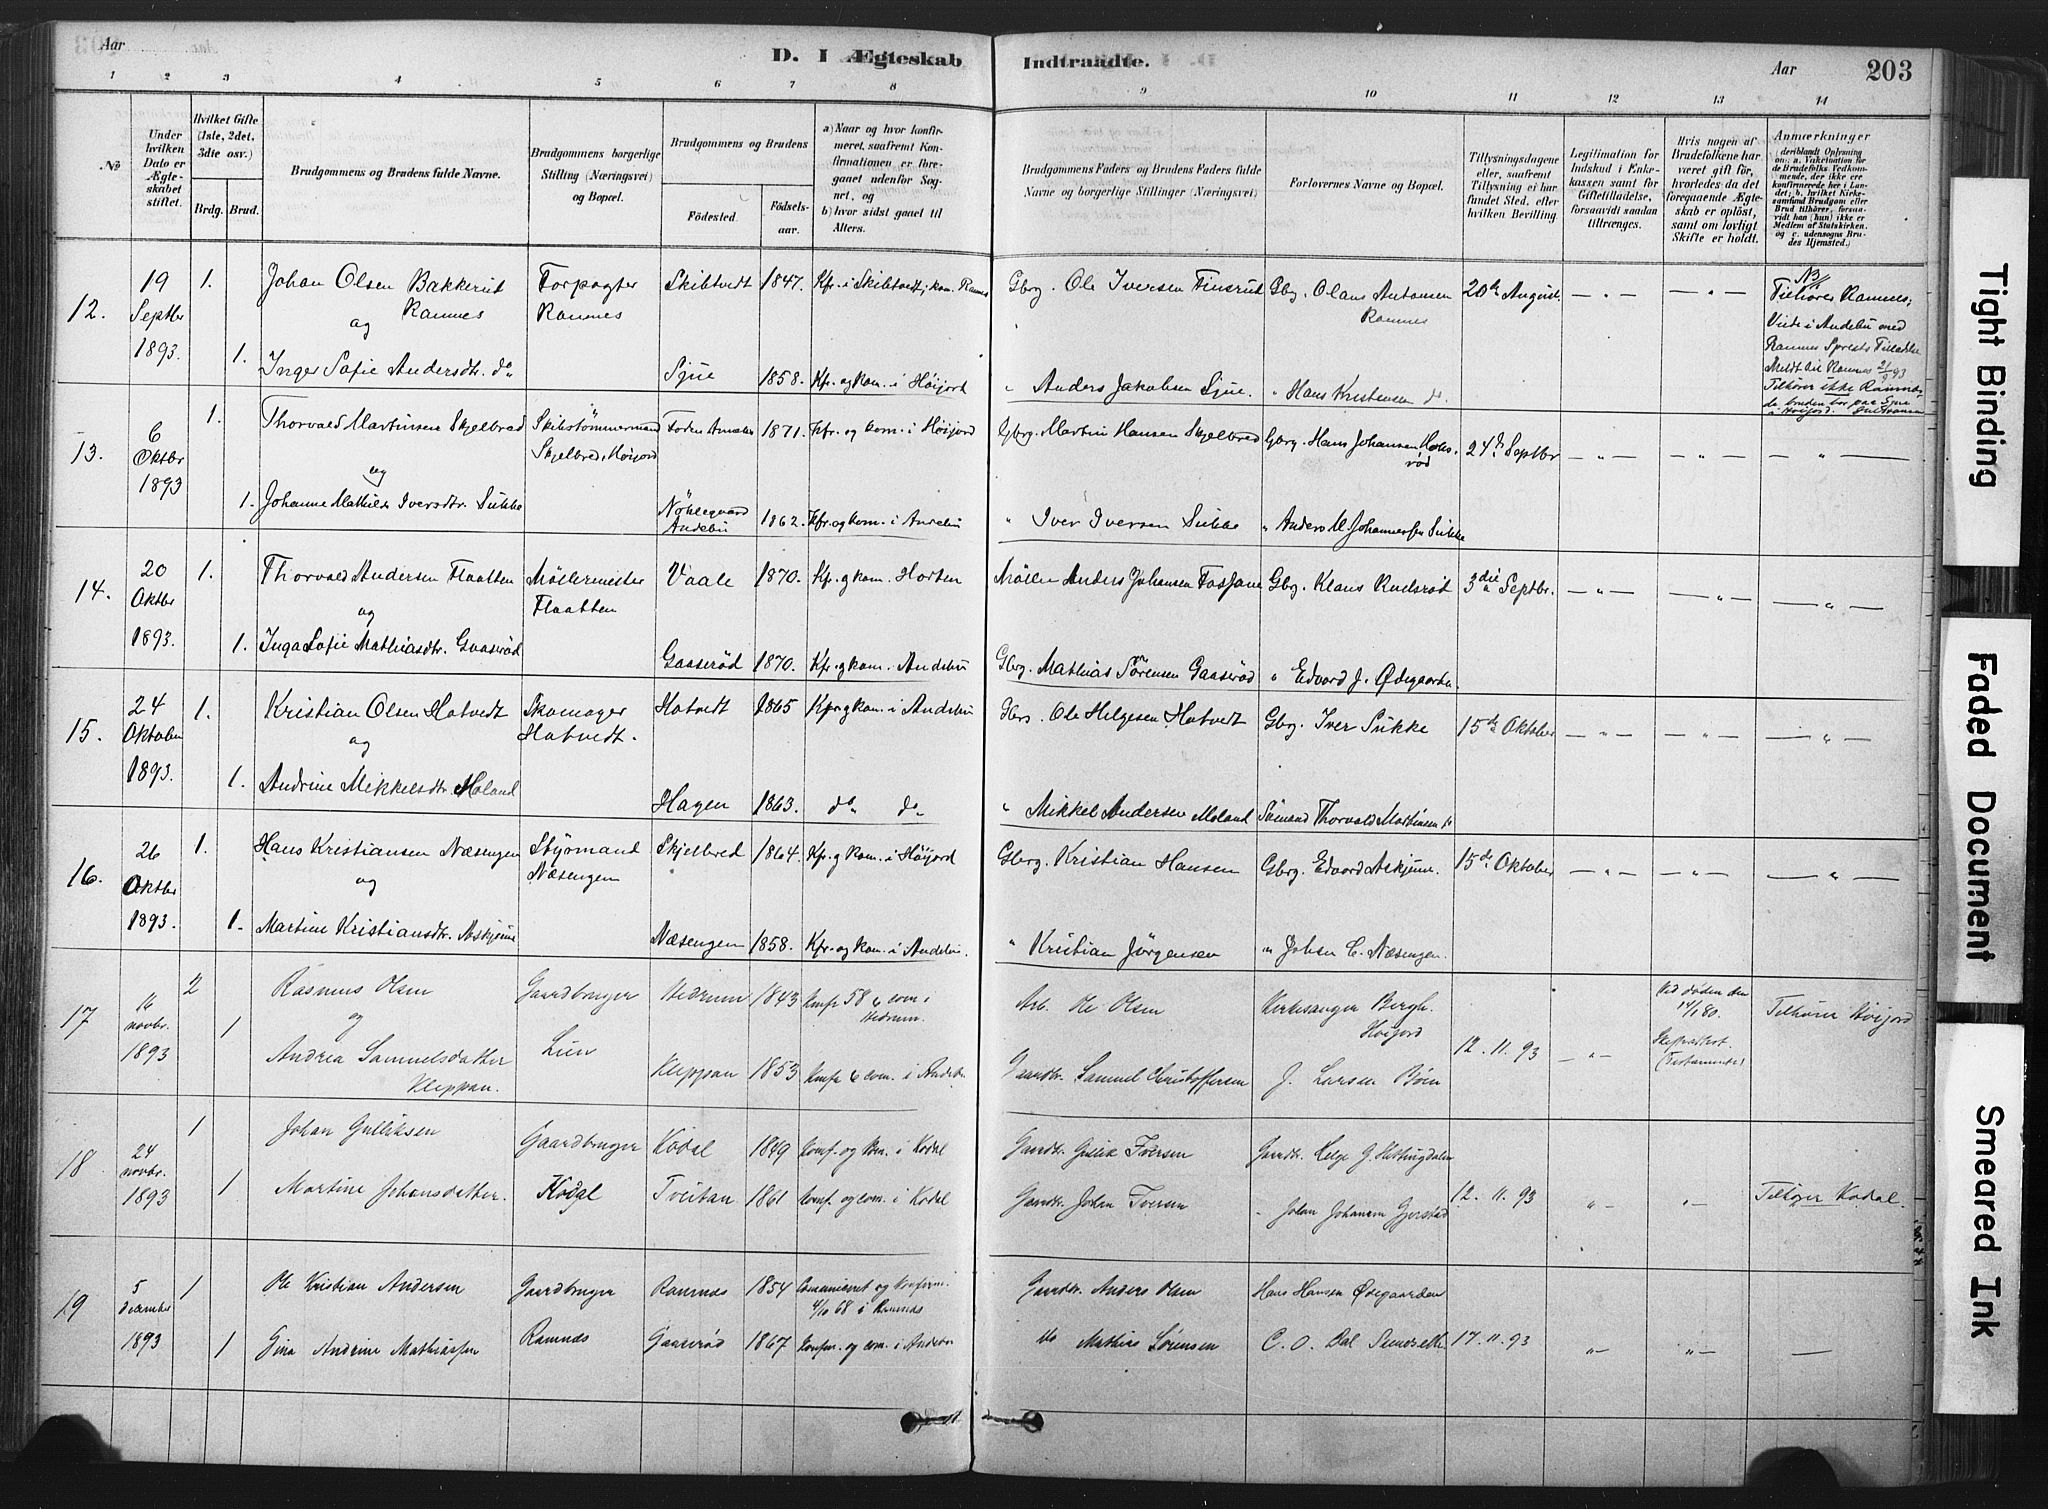 Aar
D. I Ægteskab Indtraadte.
Aar 203
1 2 3 4 5 6 7 8 9 10 11 12 13 14
No
Under hvilken Dato er Ægteskabet stiftet.
Hvilket Gifte (1ste, 2det, 3die osv.)
Brdg. Brud.
Brudgommens og Brudens fulde Navne.
Brudgommens borgerlige Stilling (Næringsvei) og Bopæl.
Brudgommens og Brudens
Fødested. Fødselsaar.
a) Naar og hvor konfirmeret, saafremt Konfirmationen er foregaaet udenfor Sognet, og
b) hvor sidst gaaet til Alters.
Brudgommens Faders og Brudens Faders fulde Navne og borgerlige Stillinger (Næringsvei)
Forlovernes Navne og Bopæl.
Tillysningsdagene eller, saafremt Tillysning ei har fundet Sted, efter hvilken Bevilling.
Legitimation for Indskud i Enkekassen samt for Giftetilladelse, forsaavidt saadan tiltrænges.
Hvis nogen af Brudefolkene har været gift før, hvorledes da det foregaaende Ægteskab er opløst, samt om lovligt Skifte er holdt.
Anmærkninger
(deriblandt Oplysning om: a. Vakcination for de Brudefolks Vedkommende, der ikke ere konfirmerede her i Landet; b. hvilket Kirkesamfund Brudgom eller Brud tilhører, forsaavidt han (hun) ikke er Medlem af Statskirken, og c. udensogns Brudes Hjemsted.)
12. 19 Septbr 1893. 1. Johan Olsen Bakkerud Ramnes Forpagter Ramnes Skibtvedt 1847. Kfr. i Skibtvedt, kom. Ramnes Gbrg. Ole Iversen Finsrud Gbg. Olaus Antonsen Ramnes 20de August. — " — — " — NB
Tilhører Ramnes;
Viede i Andebu med
Ramnes Sprests Tilladelse
Meldt til Ramnes 21/9 93
Tilhører ikke Ramnes
da bruden bor paa Sjue
i Høijord.
og
1. Inger Sofie Andersdtr. do Sjue 1858. Kfr. og kom. i Høijord " Anders Jakobsen Sjue. " Hans Kristensen do.
13. 6 Oktbr 1893 1. Thorvald Martinsen Skjelbred Skibstømmermand Skjelbred, Høijord Foden Andebu 1871. Kfr. og kom. i Høijord Gbrg. Martin Hansen Skjelbred Gbrg. Hans Johansen Holsrød 24de Septbr — " — — " — — " —
og
1. Johanne Mathilde Iversdtr. Sukke Nøklegaard Andebu 1862. Kfr. og kom. i Andebu " Iver Iversen Sukke " Anders M. Johannessen Sukke
14. 20 Oktbr 1893. 1. Thorvald Andersen Flaatten Møllermester Flaatten Vaale 1870. Kfr. og kom. Horten Møller Anders Johansen Fossane Gbg. Klaus Rudsrød 3die Septbr. — " — — " — — " —
og
1. Inga Sofie Mathiasdtr. Gaaserød Gaaserød 1870. Kfr. og kom. i Andebu Gbrg. Mathias Sørensen Gaaserød " Edvard J. Ødegaarden.
15. 24 Oktober 1893. 1. Kristian Olsen Hotvedt Skomager Hotvedt. Hotvedt 1865 Kfr. og kom. i Andebu Gbrg. Ole Helgesen Hotvedt Gbrg. Iver Sukke 15de Oktober — " — — " — — " —
og
1. Andrine Mikkelsdtr. Møland Hagen 1863. do do " Mikkel Andersen Møland Sømand Thorvald Martinsen
16. 26 Oktbr 1893. 1. Hans Kristiansen Næsengen Styrmand Næsengen Skjelbred 1864. Kfr. og kom. i Høijord Gbrg. Kristian Hansen Gbrg. Edvard Askjem. 15de Oktober — " — — " — — " —
og
1. Martine Kristiansdtr. Askjem Næsengen 1858. Kfr. og kom. i Andebu. " Kristian Jørgensen " Johan C. Næsengen.
17 16 novbr. 1893 2 Rasmus Olsen Gaardbruger Lien Hedrum 1843 Konf. 58 & com i Hedrum. Arb. Ole Olsen Kirkesanger Bergh. Høijord 12. 11. 93 — " — Ved døden den 14/1 80. Skifteattest (Testamente) Tilhører Høijord
og
1 Andrea Samuelsdatter Kleppan. Kleppan 1853 Konf. & com. i Andebu. Gaardbr. Samuel Christoffersen J. Larsen Bøen
18 24 novbr. 1893 1 Johan Gulliksen Gaardbruger Kodal Kodal 1849 Konf. og kom. i Kodal Gaardbr. Gullik Iversen Gaardbr. Helge G. Hettingdalen
1 Martine Johansdatter. Tveitan 1861 Conf. og com. i Kodal Gaardbr. Johan Iversen " Johan Johansen Gjerstad 12. 11. 93 " — " — Tilhører Kodal.
19 5 december 1893 1 Ole Kristian Andersen Gaardbruger Ramnæs Ramnæs 1854 Communiceret og Konfirm. 4/10 68 i Ramnæs Gaardbr. Anders Olsen Hans Hansen Ødegaarden
1 Gina Andrine Mathiassen Gaaserød 1867 Conf. og com. i Andebu do Mathias Sørensen C. O. Dal 17. 11. 93 " — " — —
Tight Binding
Faded Document
Smeared Ink